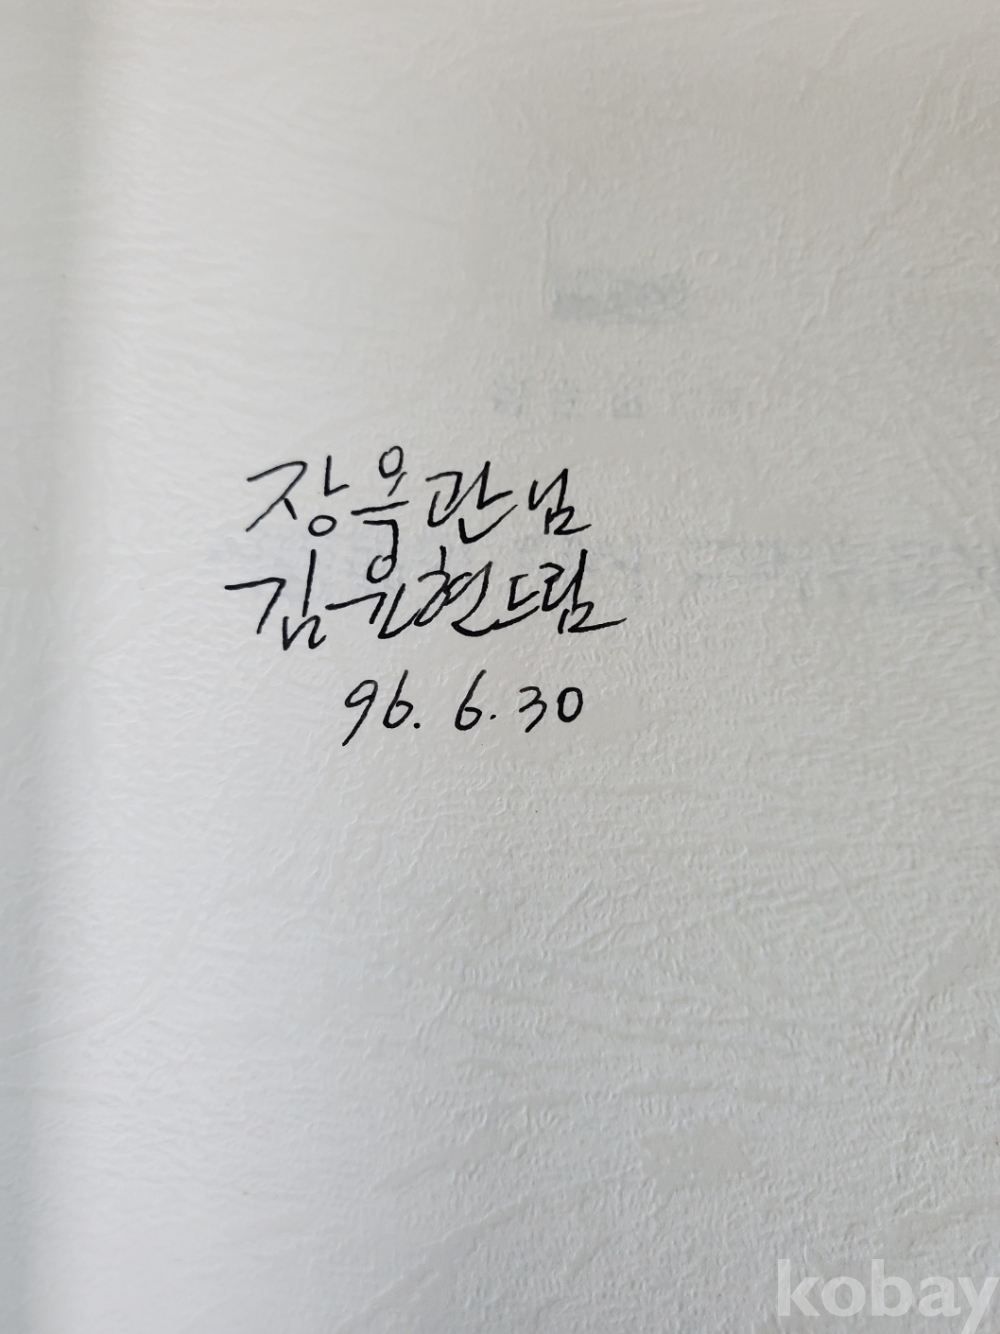 장옥관님
김윤현드림
96. 6. 30
kobay